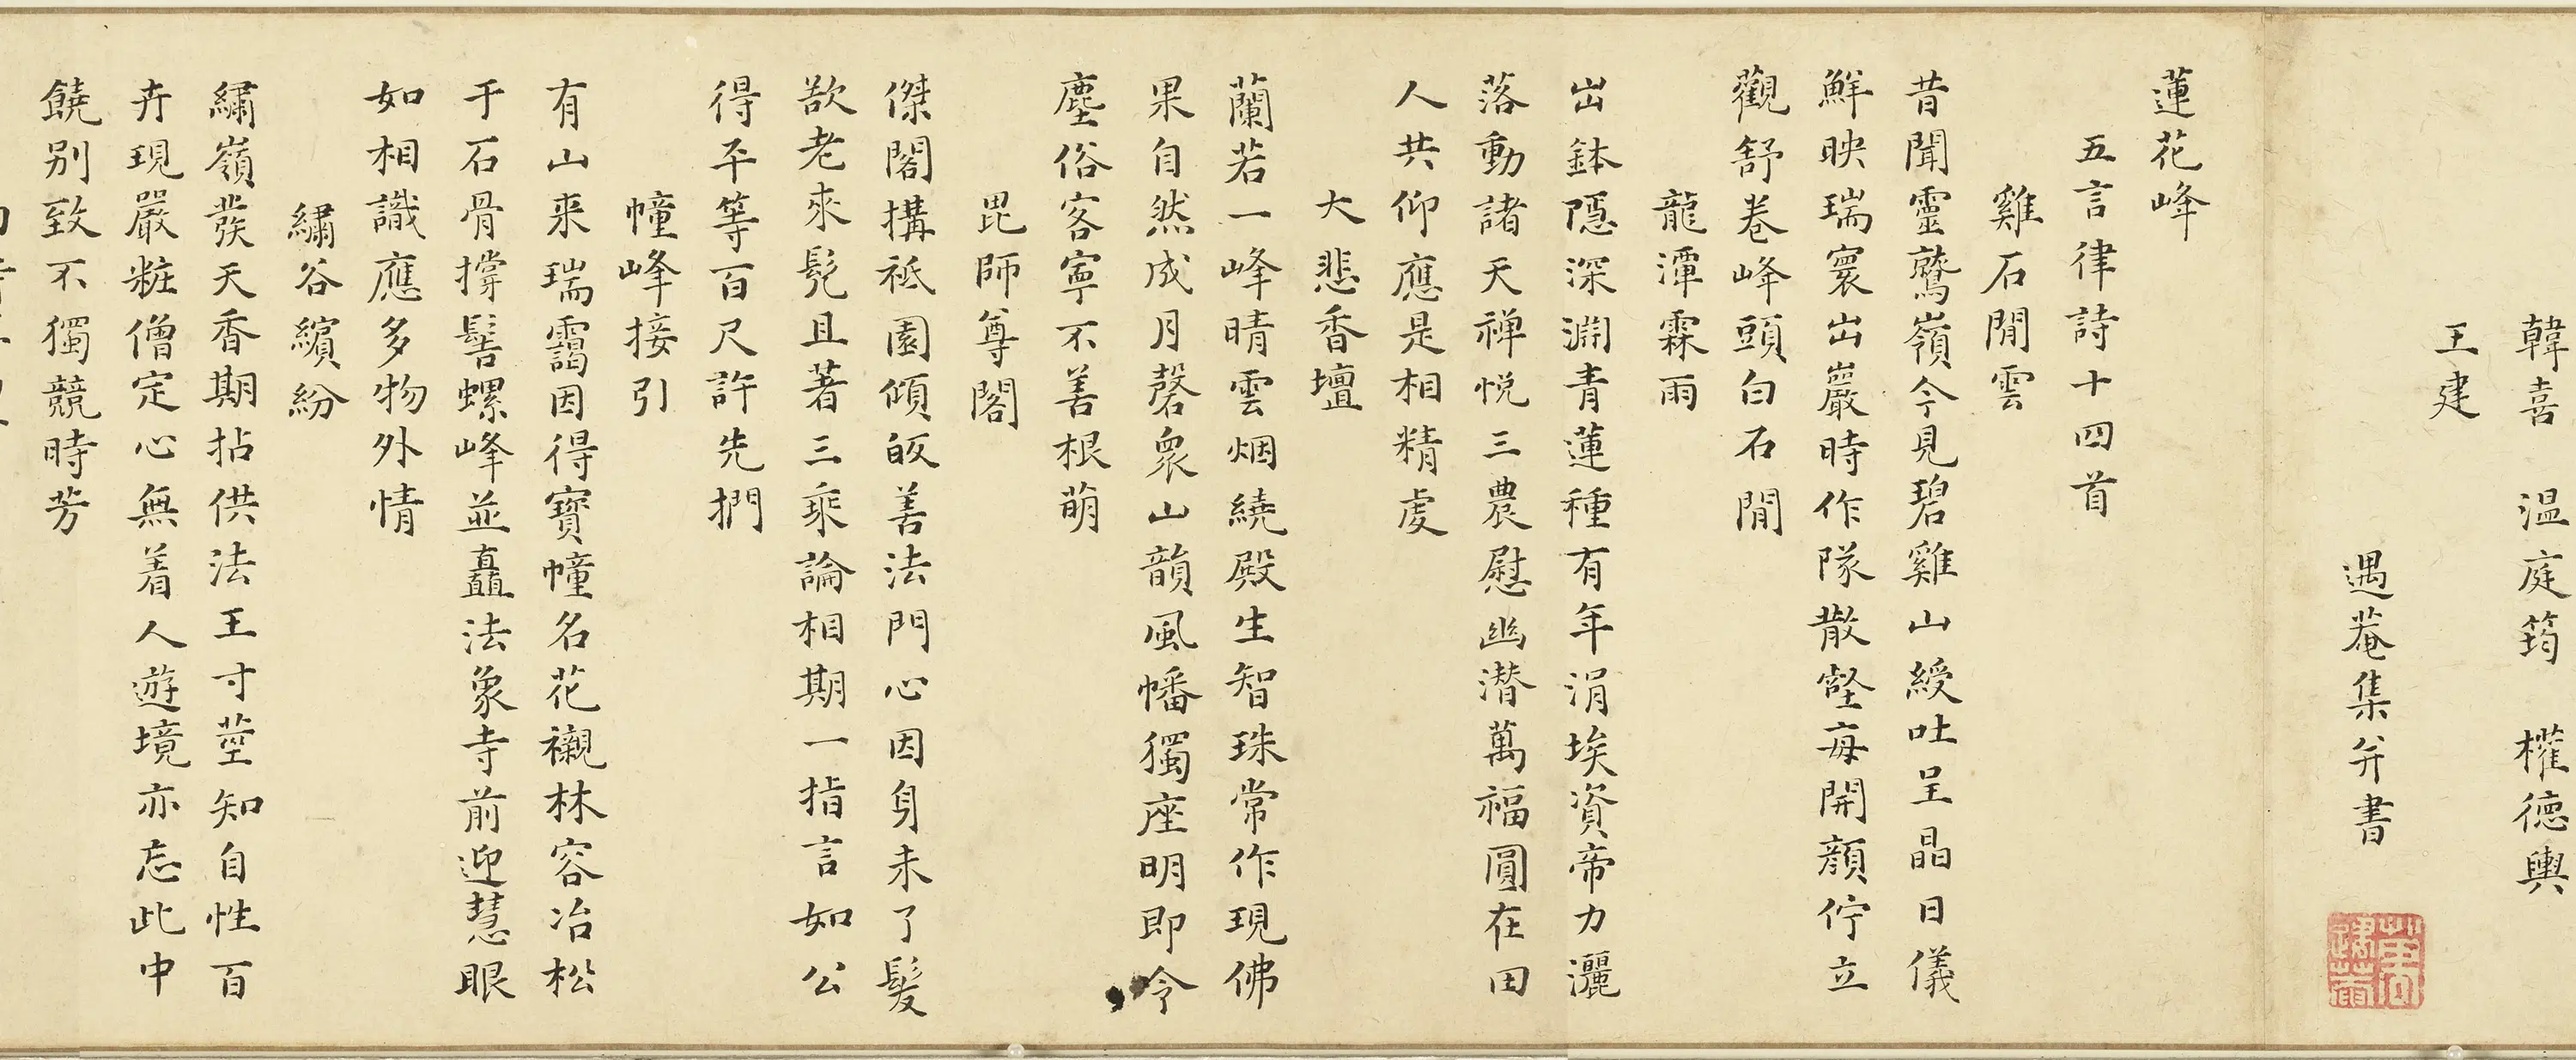 韓喜 温庭筠 權德輿
王建
遇菴集并書
蓮花峰
五言律詩十四首
雞石閒雲
昔聞靈鷲嶺今見碧雞山綬吐呈晶日儀
鮮映瑞寰出巖時作隊散壑每開顏佇立
觀舒卷峰頭白石閒
龍潭霖雨
出鉢隱深淵青蓮種有年涓埃資帝力灑
落動諸天禅悦三農慰幽潜萬福圓在田
人共仰應是相精虔
大悲香壇
蘭若一峰晴雲烟繞殿生智珠常作現佛
果自然成月磬衆山韻風幡獨座明即令
塵俗客寧不善根萌
毘師尊閣
傑閣搆祇園傾皈善法門心因身未了髮
歘老來髡且著三乘論相期一指言如公
得平等百尺許先捫
幢峰接引
有山来瑞靄因得寶幢名花襯林容冶松
于石骨撐髻螺峰並矗法象寺前迎慧眼
如相識應多物外情
繡谷繽紛
繡嶺發天香期拈供法王寸莖知自性百
卉現嚴粧僧定心無着人遊境亦忘此中
饒别致不獨競時芳